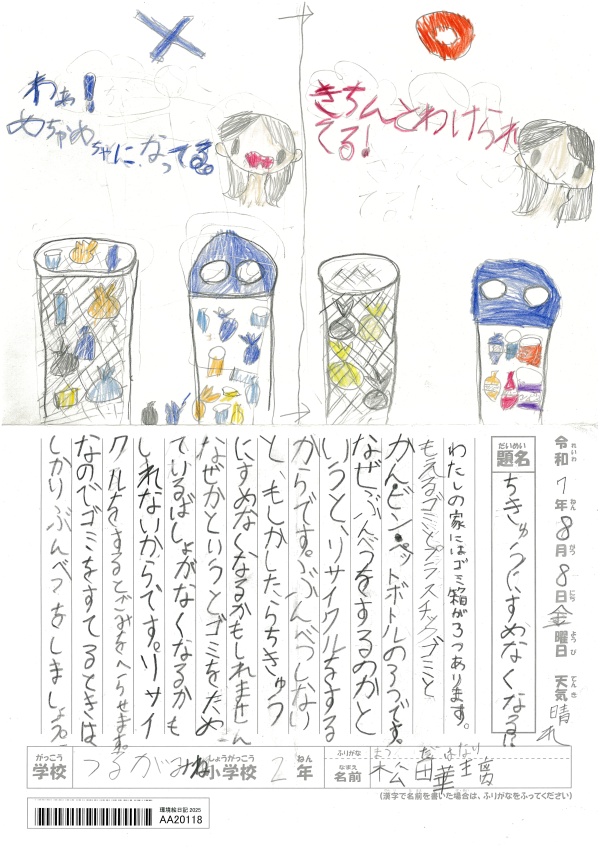 わぁ!
めちゃめちゃになってる。
きちんとわけられ
てる!
令和7年8月8日金曜日 天気晴れ
れいわ ねん がつ にち ようび てんき
だいめい
題名 ちきゅうにすめなくなる!!
わたしの家にはゴミ箱が3つあります。
もえるゴミとプラスチックゴミと
かんビン・ペットボトルの3つです。
なぜ、ぶんべつをするのかと
いうと、リサイクルをする
からです。ぶんべつしない
と、もしかしたらちきゅう
にすめなくなるかもしれません
なぜかというとゴミをため
ているばしょがなくなるかも
しれないからです。リサイ
クルをするとごみをへらせます。
なのでゴミをすてるときは
しっかりぶんべつをしましょう。
がっこう
学校 つるがみね小学校 2年
しょうがっこう ねん
ふりがな まつだ はなり
なまえ
名前 松田 華璃
(漢字で名前を書いた場合は、ふりがなをふってください)
環境絵日記 2025
AA20118